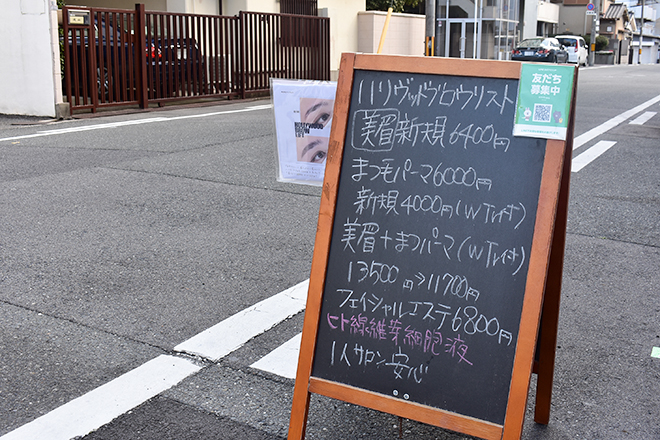 ハリウッドブロウリスト
美眉新規6400円
まつ毛パーマ6000円
新規4000円(Wﾄﾚｲﾅｰ)
美眉+まつパーマ(Wﾄﾚｲﾅｰ)
13500円→11700円
フェイシャルエステ6800円
ヒト線維芽細胞液
1人サロン安心
友だち
募集中
HOLLYWOOD
BROW
LIFT